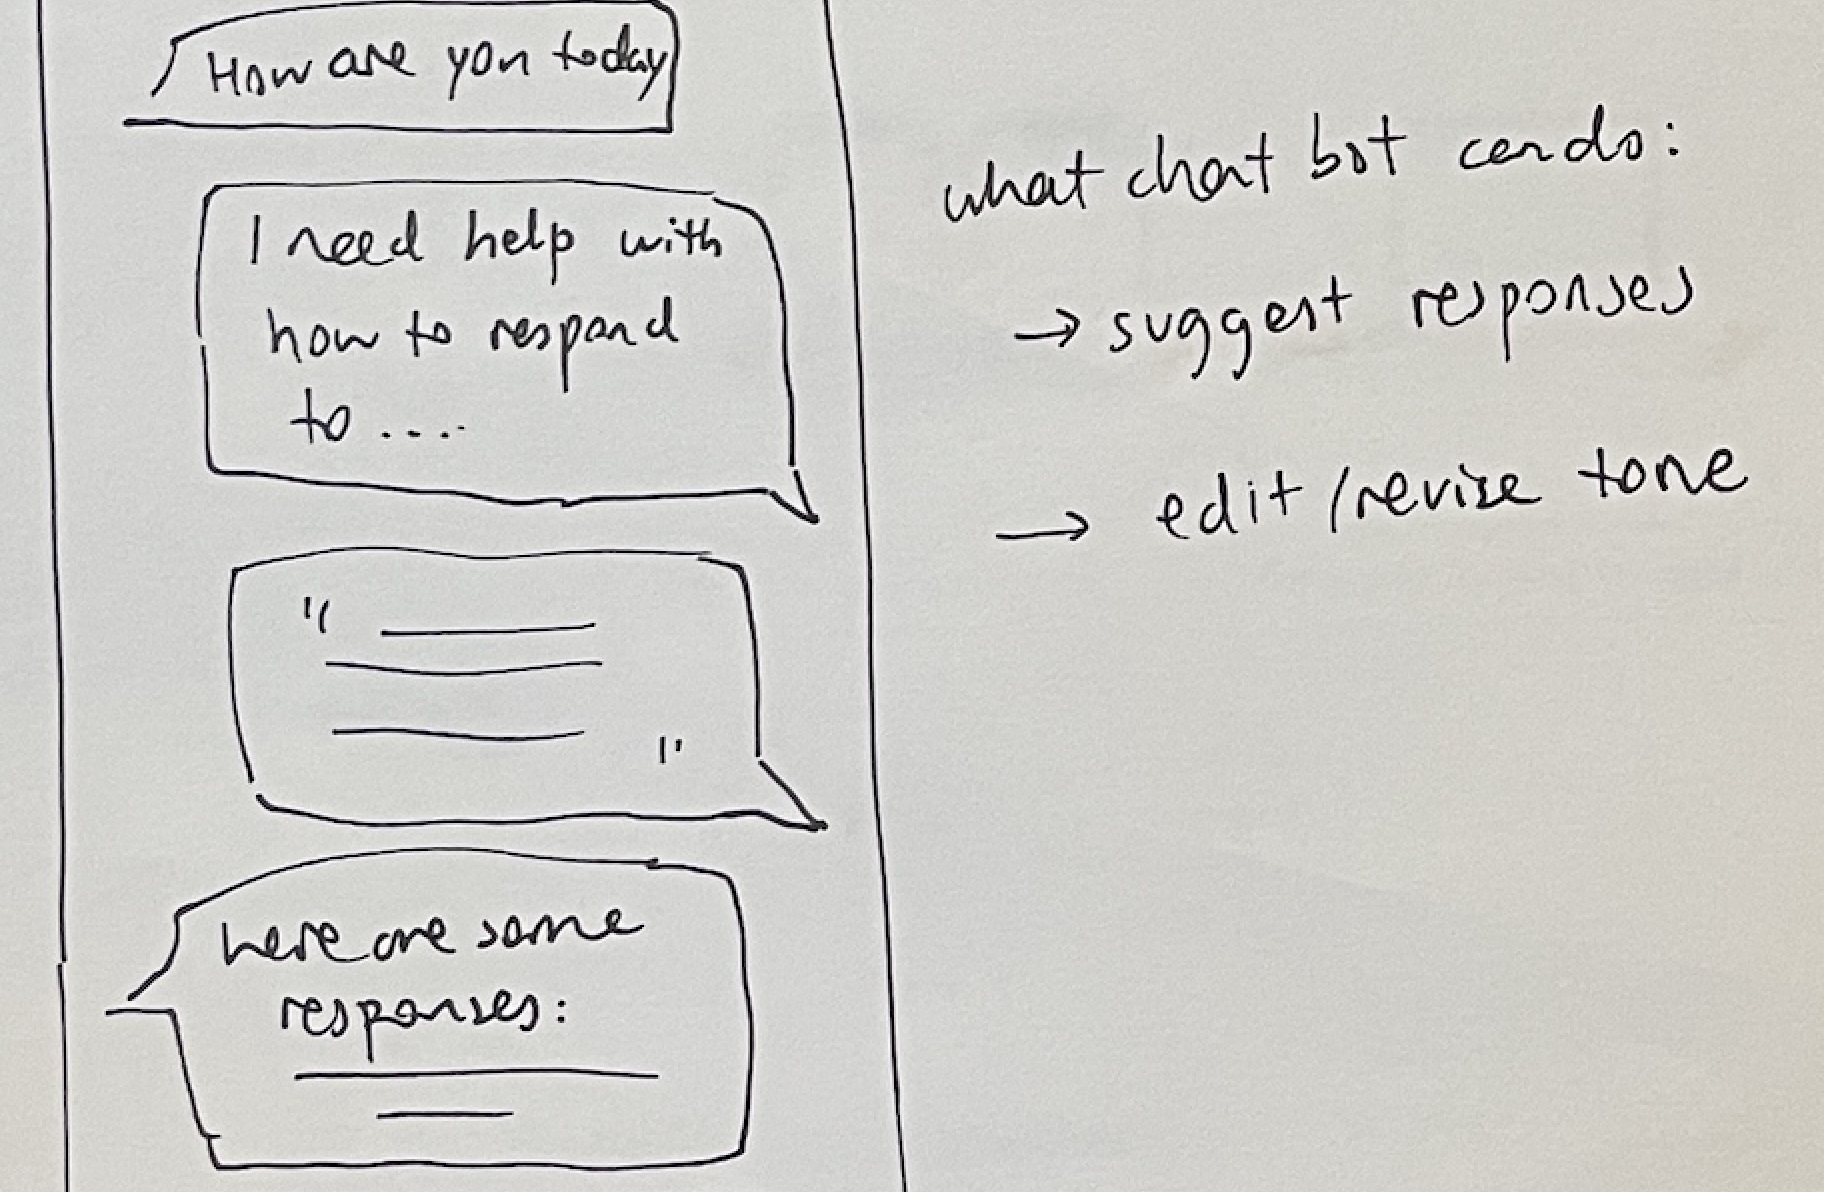 How are you today
I need help with
how to respond
to ....
"
"
here are some
responses:
what chat bot can do:
→ suggest responses
→ edit/revise tone